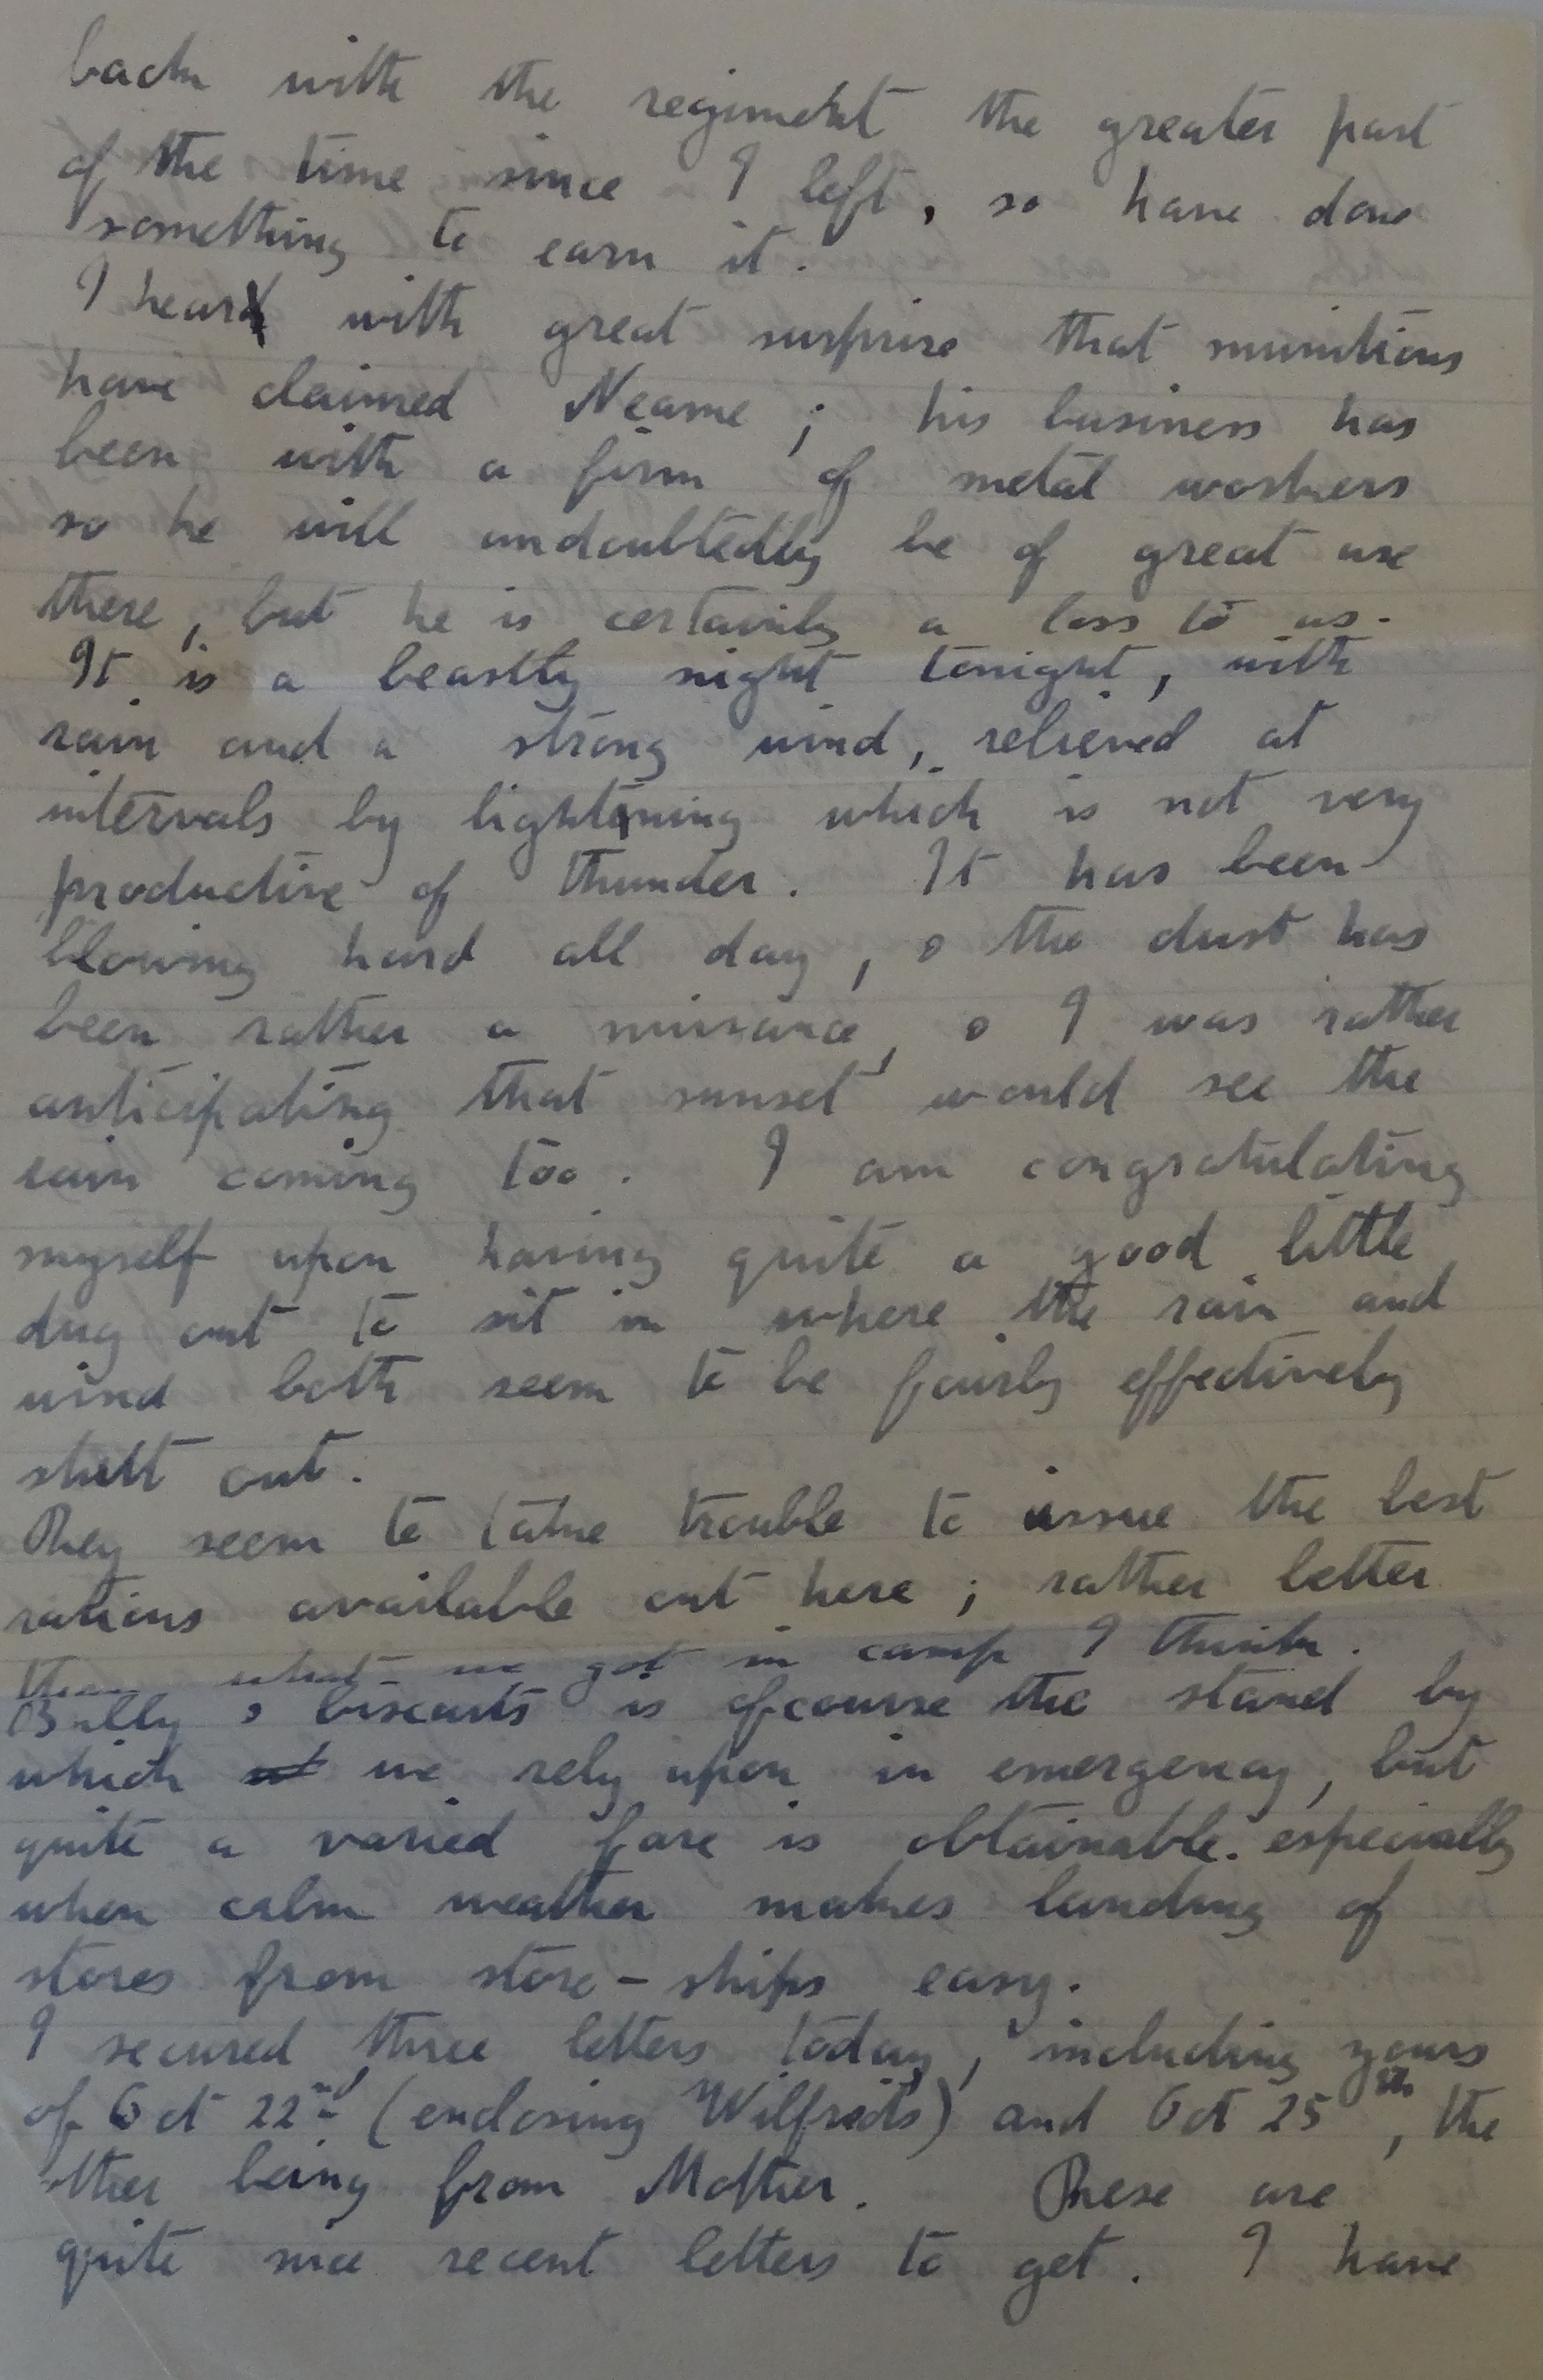 back with the regiment the greater part
of the time since I left, so have done
something to earn it.
I hear with great surprise that munitions
have claimed Neame; his business has
been with a firm of metal workers
so he will undoubtedly be of great use
there, but he is certainly a loss to us.
It is a beastly night tonight, with
rain and a strong wind, relieved at
intervals by lightning which is not very
productive of thunder. It has been
blowing hard all day, & the dust has
been rather a nuisance, & I was rather
anticipating that sunset would see the
rain coming too. I am congratulating
myself upon having quite a good little
dug out to sit in where the rain and
wind both seem to be fairly effectively
shutt out.
They seem to take trouble to issue the best
rations available out here; rather better
than what we got in camp I think.
Bully & biscuits is ofcourse the stand by
which we rely upon in emergency, but
quite a varied fare is obtainable. especially
when calm weather makes landing of
stores from store-ships easy.
I secured three letters today, including yours
of Oct 22nd (enclosing Wilfreds) and Oct 25th, the
other being from Mother. These are
quite nice recent letters to get. I have